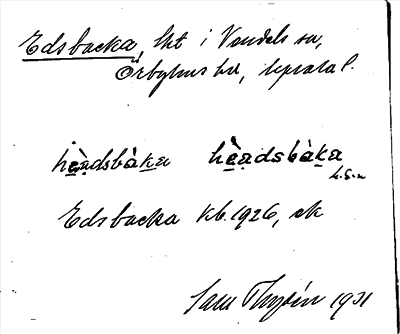 Edsbacka, lht i Vendels sn,
Örbyhus hd, Uppsala l.
hèa̤dsbàka hèa̤dsbàka
Edsbacka kb. 1926, ek
Sam Thyrén 1931